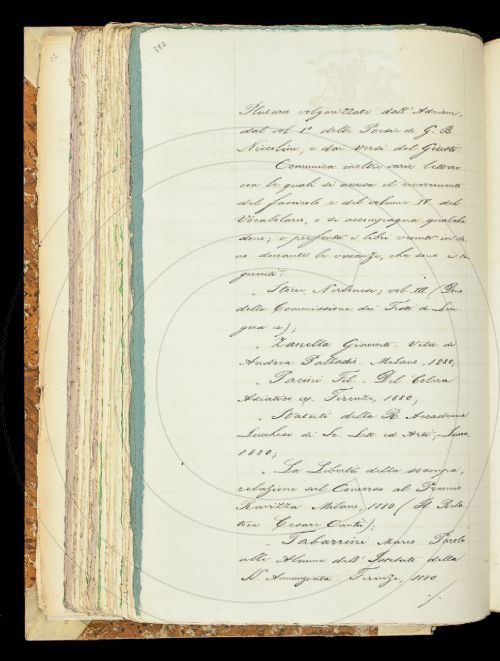 382
Plutarco volgarizzato dall'Adriani,
dal vol. 1º delle Poesie di G. B.
Niccolini, e dai Versi del Giusti
Comunica inoltre varie lettere
con le quali si accusa il ricevimento
del fascicolo e del volume IV del
Vocabolario, e si accompagna qualche
dono; e presenta i libri venuti in do-
no durante le vacanze, che sono i se-
guenti:
„ Storie Nerbonesi, vol. III (Dono
della Commissione dei Testi di Lin-
gua ec);
„ Zanella Giacomo. Vita di
Andrea Palladio. Milano, 1880;
„ Pacini Fil. Del Colera
Asiatico ec. Firenze, 1880;
„ Statuti della R. Accademia
Lucchese di Sc. Lett. ed Arti; Lucca,
1880;
„ La Libertà della stampa,
relazione sul Concorso al Premio
Ravizza. Milano, 1880 (Il Rela-
tore Cesare Cantù);
„ Tabarrini Marco. Parole
alle Alunne dell'Istituto della
SS. Annunziata. Firenze, 1880